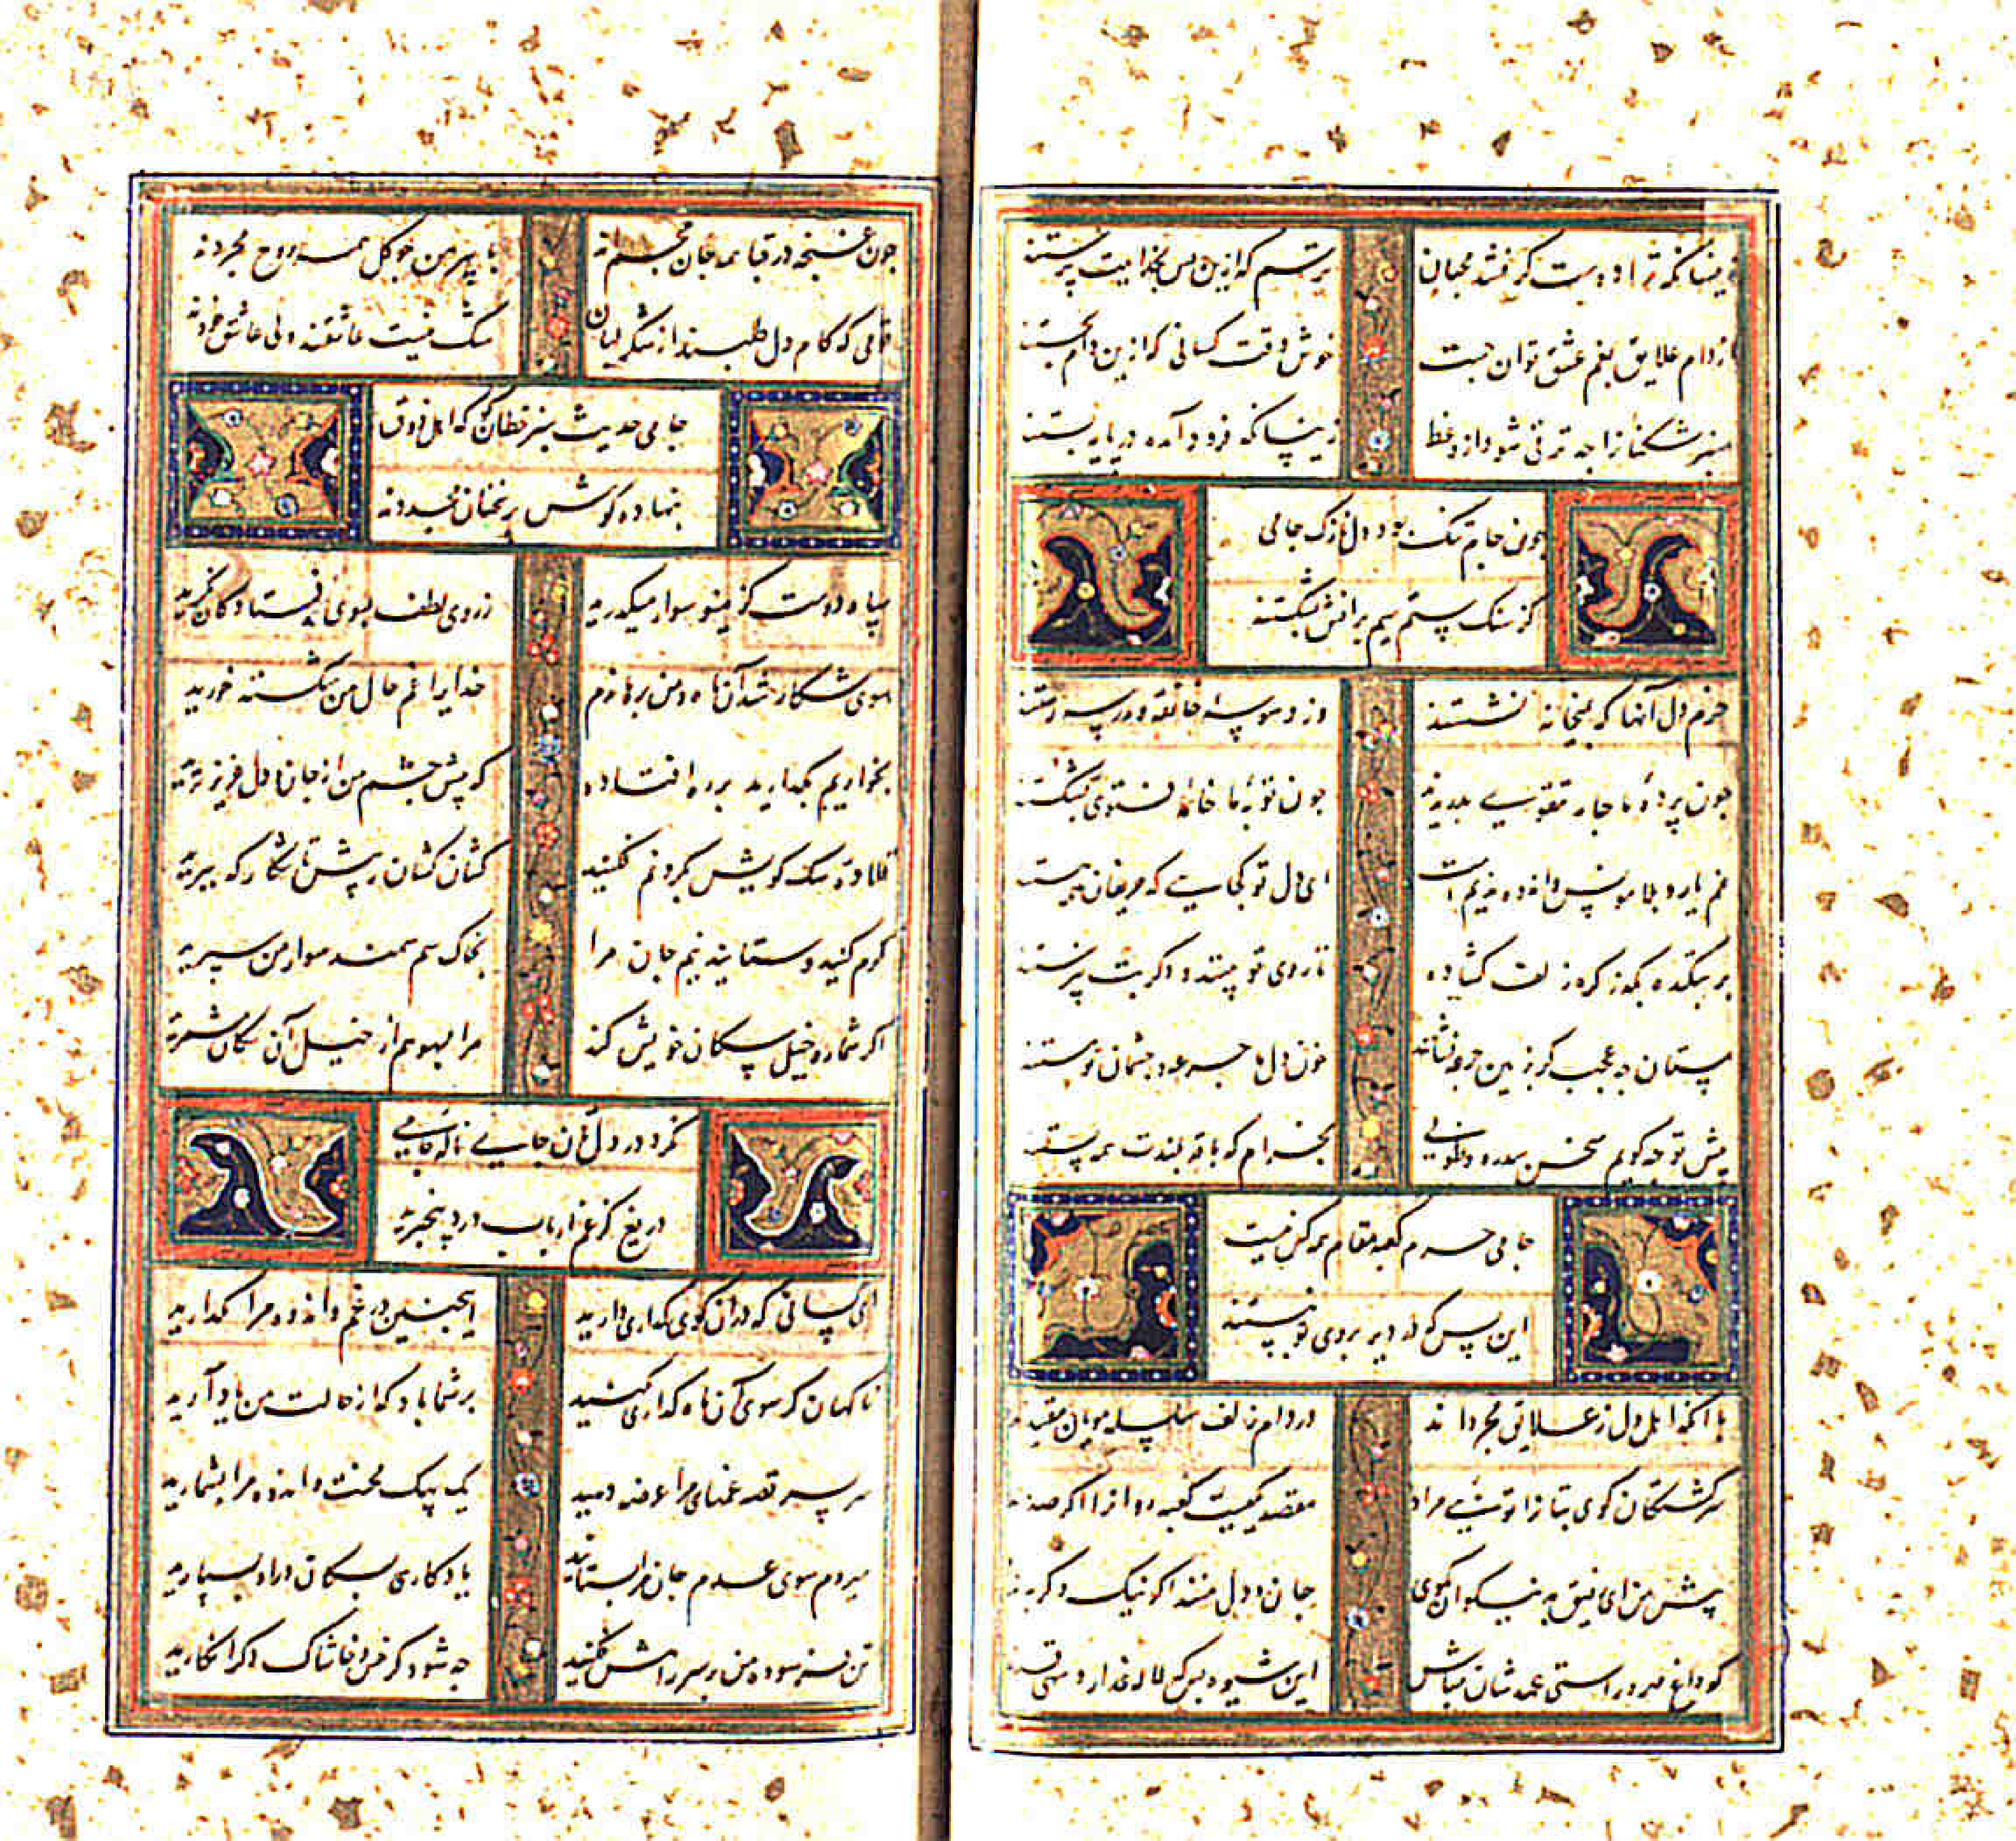 زینسان که ترا دوست گرفتند محبان
ترسم که ازین پس بخداییت پرستند
از دام علایق بغم عشق توان جست
خوش وقت کسانی که ازین دام بجستند
منبرشکنانرا چه ترقی شود از وعظ
زینسان که فرود آمده در پایه پستند
چون جام تنک بود دل نازک جامی
کز سنک ستم سیم برانش بشکستند
خرم دل آنها که بمیخانه نشستند
وز وسوسه خانقه و مدرسه رستند
چون پرده ما جامه تقوی بدریدند
چون توبه ما خامه فتوی بشکستند
غم یار و بلا مونس و اندوه ندیم است
ای دل تو کجایی که حریفان همه هستند
در بتکده بگذر گره زلف گشاده
تا روی تو بینند و دگر بت نپرستند
مستان چه عجب گر بزمین جرعه فشانند
خون دل ما جرعه و چشمان تو مستند
پیش تو چه گویم سخن سدره و طوبی
بخرام که با قد بلندت همه پستند
جامی حرم کعبه مقام همه کس نیست
این بس که در دیر بروی تو نبستند
با آنکه اهل دل ز علایق مجرداند
در دام زلف سلسله مویان مقیدند
سرگشتگان کوی بتانرا تویی مراد
مقصد یکیست کعبه روانرا اگر صدند
پیش من ای رفیق به نیکوان مگوی
جان و دل منند اگر نیک و گر بدند
کو داغ مهر و راستی عهدشان مباش
این شیوه بس که لاله عذار و سهی قدند
چون غنچه در قبا همه جان مجسم اند
با پیرهن چو گل همه روح مجردند
قومی که کام دل طلبند از شکر لبان
شک نیست عاشقند ولی عاشق خودند
جامی حدیث سبز خطان گو که اهل ذوق
بنهاده گوش بر سخنان
سپاه دوست کزینسو سوار میگذرید
ز روی لطف بسوی فتادگان نگرید
بسوی شکار شد آن ماه و من برهازدم
خدایرا غم حال من شکسته خورید
بخواریم بگذارید بر ره افتاده
که پیش چشم من از جان و دل عزیزترید
قلاده سک کویش بگردنم فکنید
کشان کشان پیش تا شکارگه ببرید
کرم کنید و ستانید نیم جان مرا
بخاک سم سمند سوار من سپرید
اگر شماره خیل سکان خویش کند
مرا بسهو هم از خیل آن سکان شمرید
نکرد در دلتان جایی ناله جامی
دریغ کز غم ارباب درد بیخبرید
ای کسانی که در آن کوی گذاری دارید
اینچنین در غم و اندوه مرا نگذارید
ناگهان گر سوی آن ماه گذاری بکنید
بر شما باد که از حالت من یاد آرید
سر بسر قصه غمهای مرا عرضه دهید
یک بیک محنت و اندوه مرا بشمارید
میروم سوی عدم جان مرا بستانید
یادگاری بسکان در او بسپارید
تن فرسوده من بر سر راهش فکنید
چه شود گر خس و خاشاک دگر انگارید